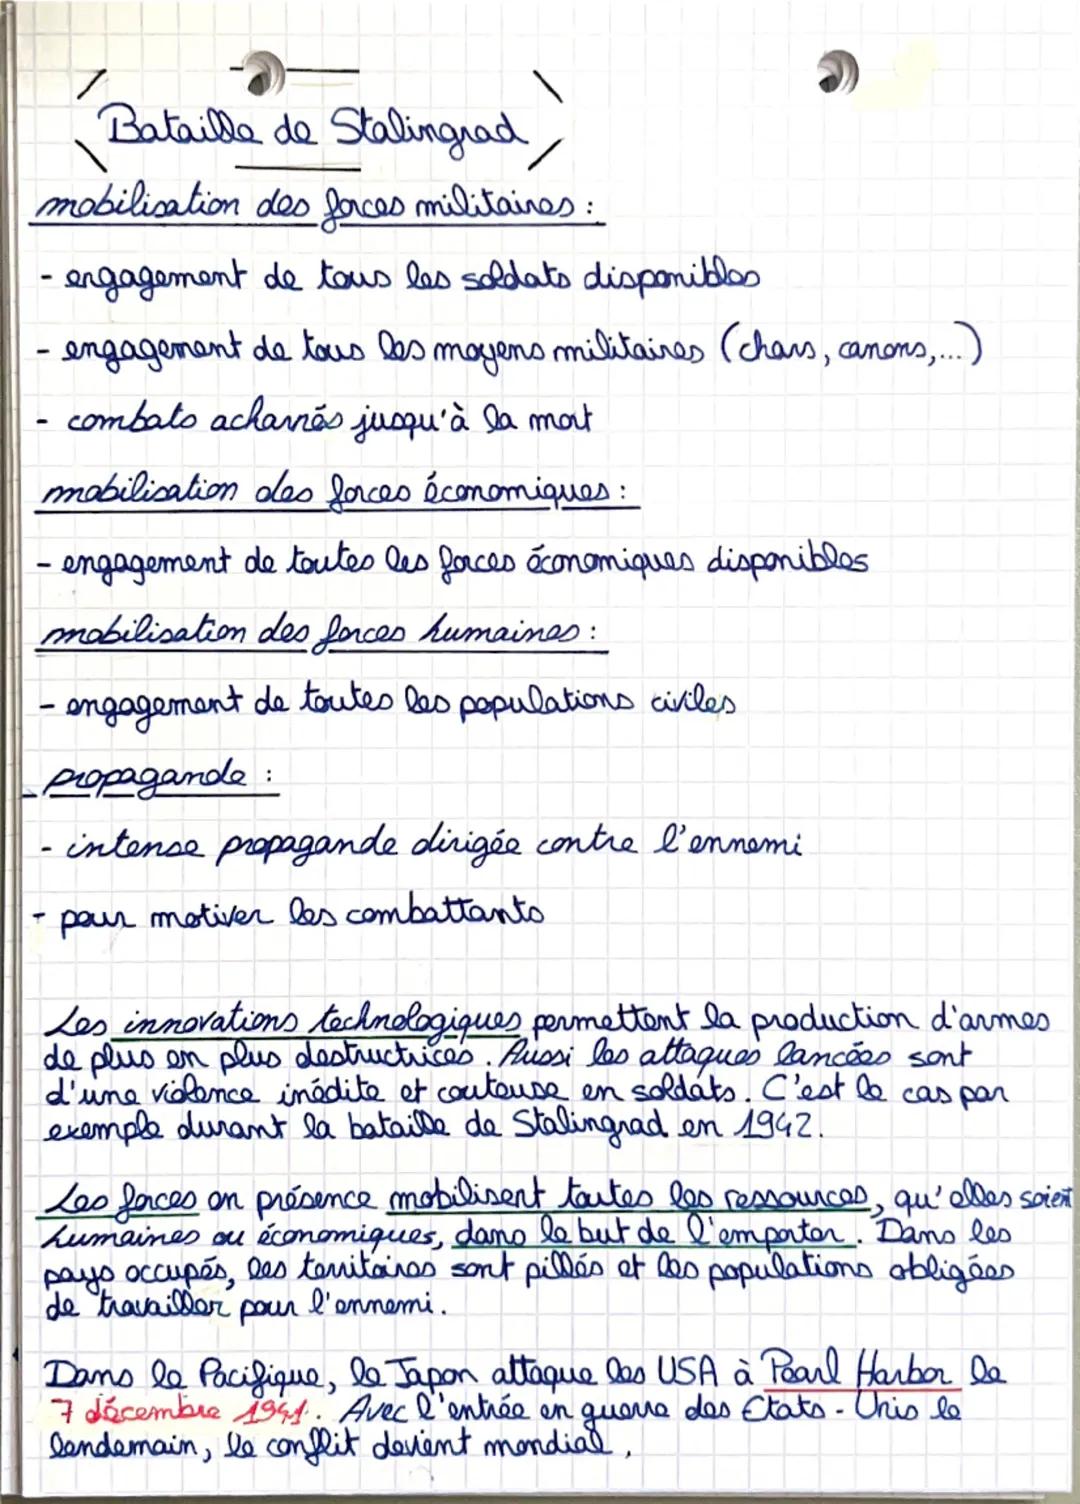 Bataille de Stalingrad
mobilisation des forces militaires :
- engagement de tous les soldats disponibles
- engagement de tous les moyens militaires (chars, canons,...)
- combats acharnés jusqu'à la mort
mobilisation des forces économiques :
- engagement de toutes les forces économiques disponibles
mobilisation des forces humaines :
- engagement de toutes les populations civiles
propagande :
- intense propagande dirigée contre l'ennemi
- pour motiver les combattants
Les innovations technologiques permettent la production d'armes
de plus en plus destructrices. Aussi les attaques lancées sont
d'une violence inédite et couteuse en soldats. C'est le cas par
exemple durant la bataille de Stalingrad en 1942.
Les forces en présence mobilisent toutes les ressources, qu'elles soient
humaines ou économiques, dans le but de l'emporter. Dans les
pays occupés, les territoires sont pillés et les populations obligées
de travailler pour l'ennemi.
Dans le Pacifique, le Japon attaque les USA à Pearl Harbor le
7 décembre 1941. Avec l'entrée en guerre des Etats-Unis le
lendemain, le conflit devient mondial,